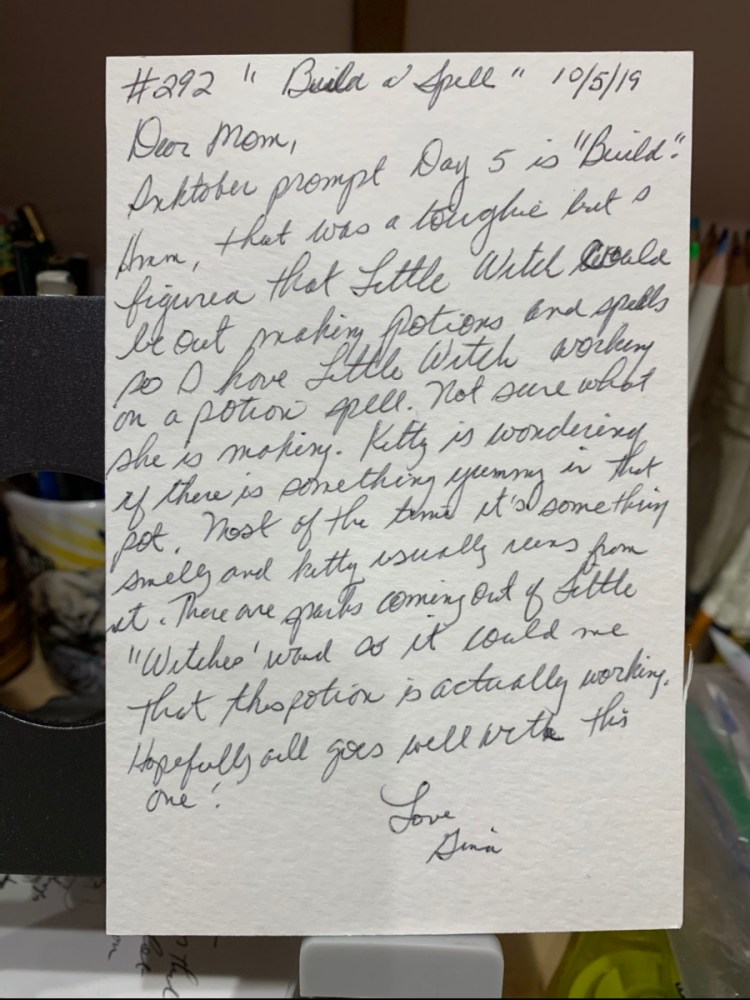 #292 "Build a' Spell" 10/5/19
Dear Mom,
Inktober prompt Day 5 is "Build".
Hmm, that was a toughie but I
figured that Little Witch would
be out making potions and spells
so I have Little Witch working
on a potion spell. Not sure what
she is making. Kitty is wondering
if there is something yummy in that
pot. Most of the time it's something
smelly and kitty usually runs from
it. There are sparks coming out of Little
"Witches' wand so it could me
that this potion is actually working.
Hopefully all goes well with this
one!
Love
Gina